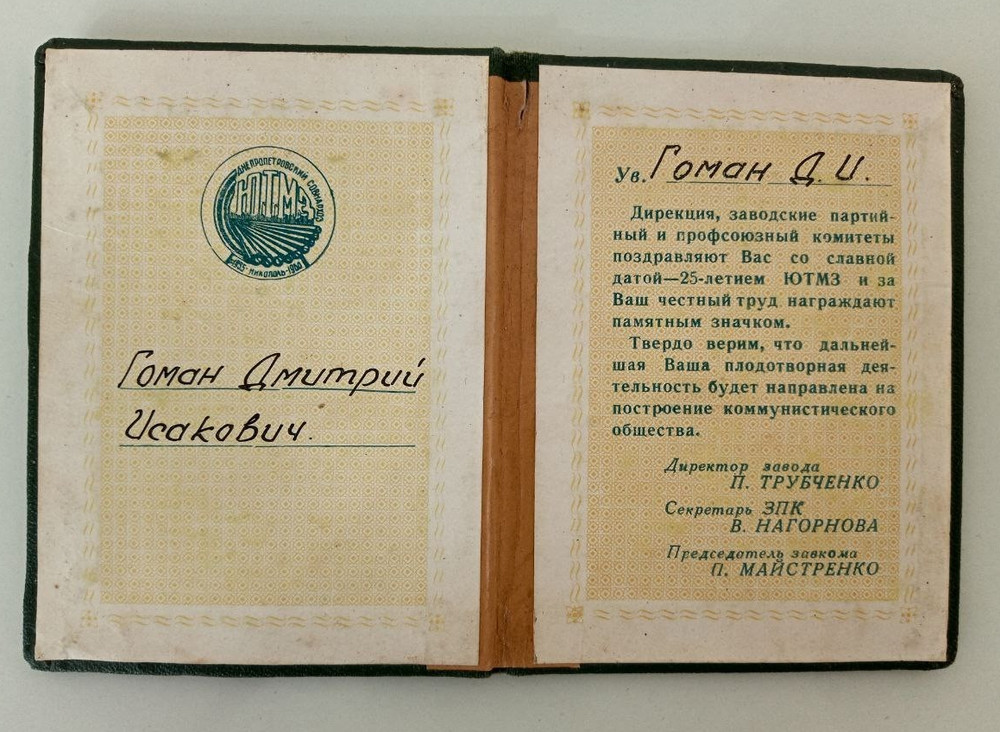 ДНЕПРОПЕТРОВСКИЙ СОВНАРХОЗ
ЮТМЗ
1935-НИКОПОЛЬ-1960
Гоман Дмитрий
Исакович.
Ув. Гоман Д. И.
Дирекция, заводские партий-
ный и профсоюзный комитеты
поздравляют Вас со славной
датой—25-летием ЮТМЗ и за
Ваш честный труд награждают
памятным значком.
Твердо верим, что дальней-
шая Ваша плодотворная дея-
тельность будет направлена на
построение коммунистического
общества.
Директор завода
П. ТРУБЧЕНКО
Секретарь ЗПК
В. НАГОРНОВА
Председатель завкома
П. МАЙСТРЕНКО